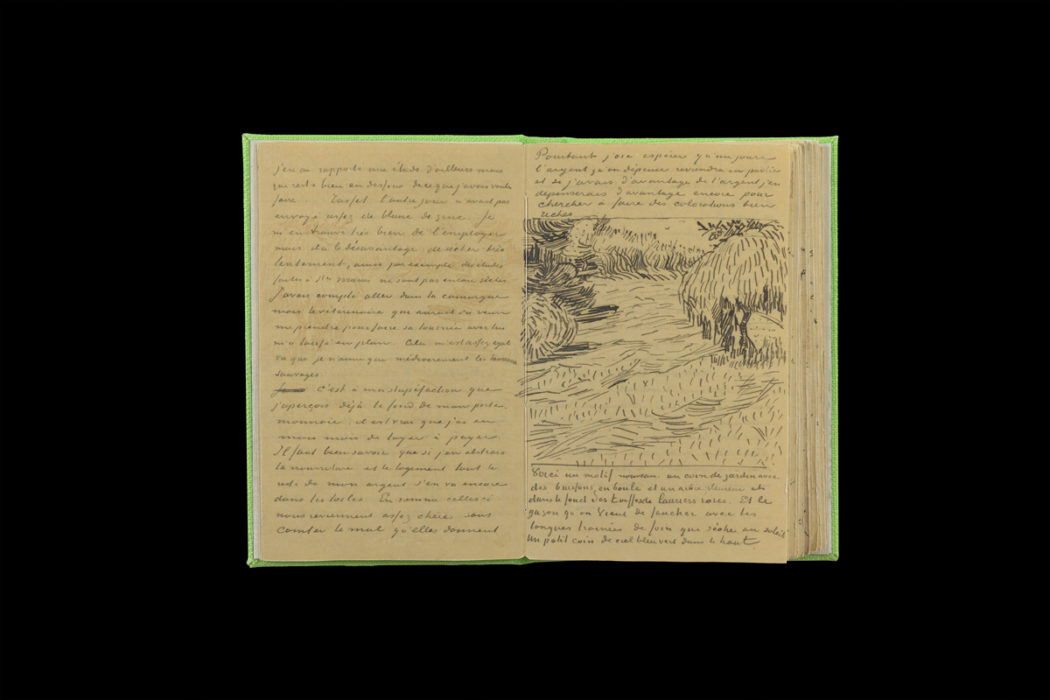 j'en ai rapporté une étude d'ailleurs mais
qui reste bien en dessous de ce que j'avais voulu
faire. Tasset l'autre jour n'avait pas
envoyé assez de blanc de zinc. Je
m'en trouve très bien de l'employer
mais il a le désavantage de sécher très
lentement, ainsi par exemple des études
faites à Stes Maries ne sont pas encore sèches
J'avais compté aller dans la camargue
mais le vétérinaire qui aurait dû venir
me prendre pour faire sa tournée avec lui
m'a laissé en plan. Cela m'est assez egal
vu que je n'aime que médiocrement les taureaux
sauvages
C'est à ma stupéfaction que
j'aperçois déjà le fond de mon porte.
monnaie, il est vrai que j'ai eu
mon mois de loyer à payer.
Il faut bien savoir que si j'en abstrais
la nourriture et le logement tout le
reste de mon argent s'en va encore
dans les toiles. En somme celles-ci
nous reviennent assez chère sans
conter le mal qu'elles donnent
Pourtant j'ose espérer qu'un jour
l'argent qu'on dépense reviendra en partie
et si j'avais d'avantage de l'argent j'en
depenserais d'avantage encore pour
chercher à faire des colorations bien
riches
Voici un motif nouveau. un coin de jardin avec
des buissons en boule et un arbre pleureur et
dans le fond des touffes de lauriers roses. Et le
gazon qu'on vient de faucher avec les
longues trainées de foin que sèche au soleil
un petit coin de ciel bleu vert dans le haut